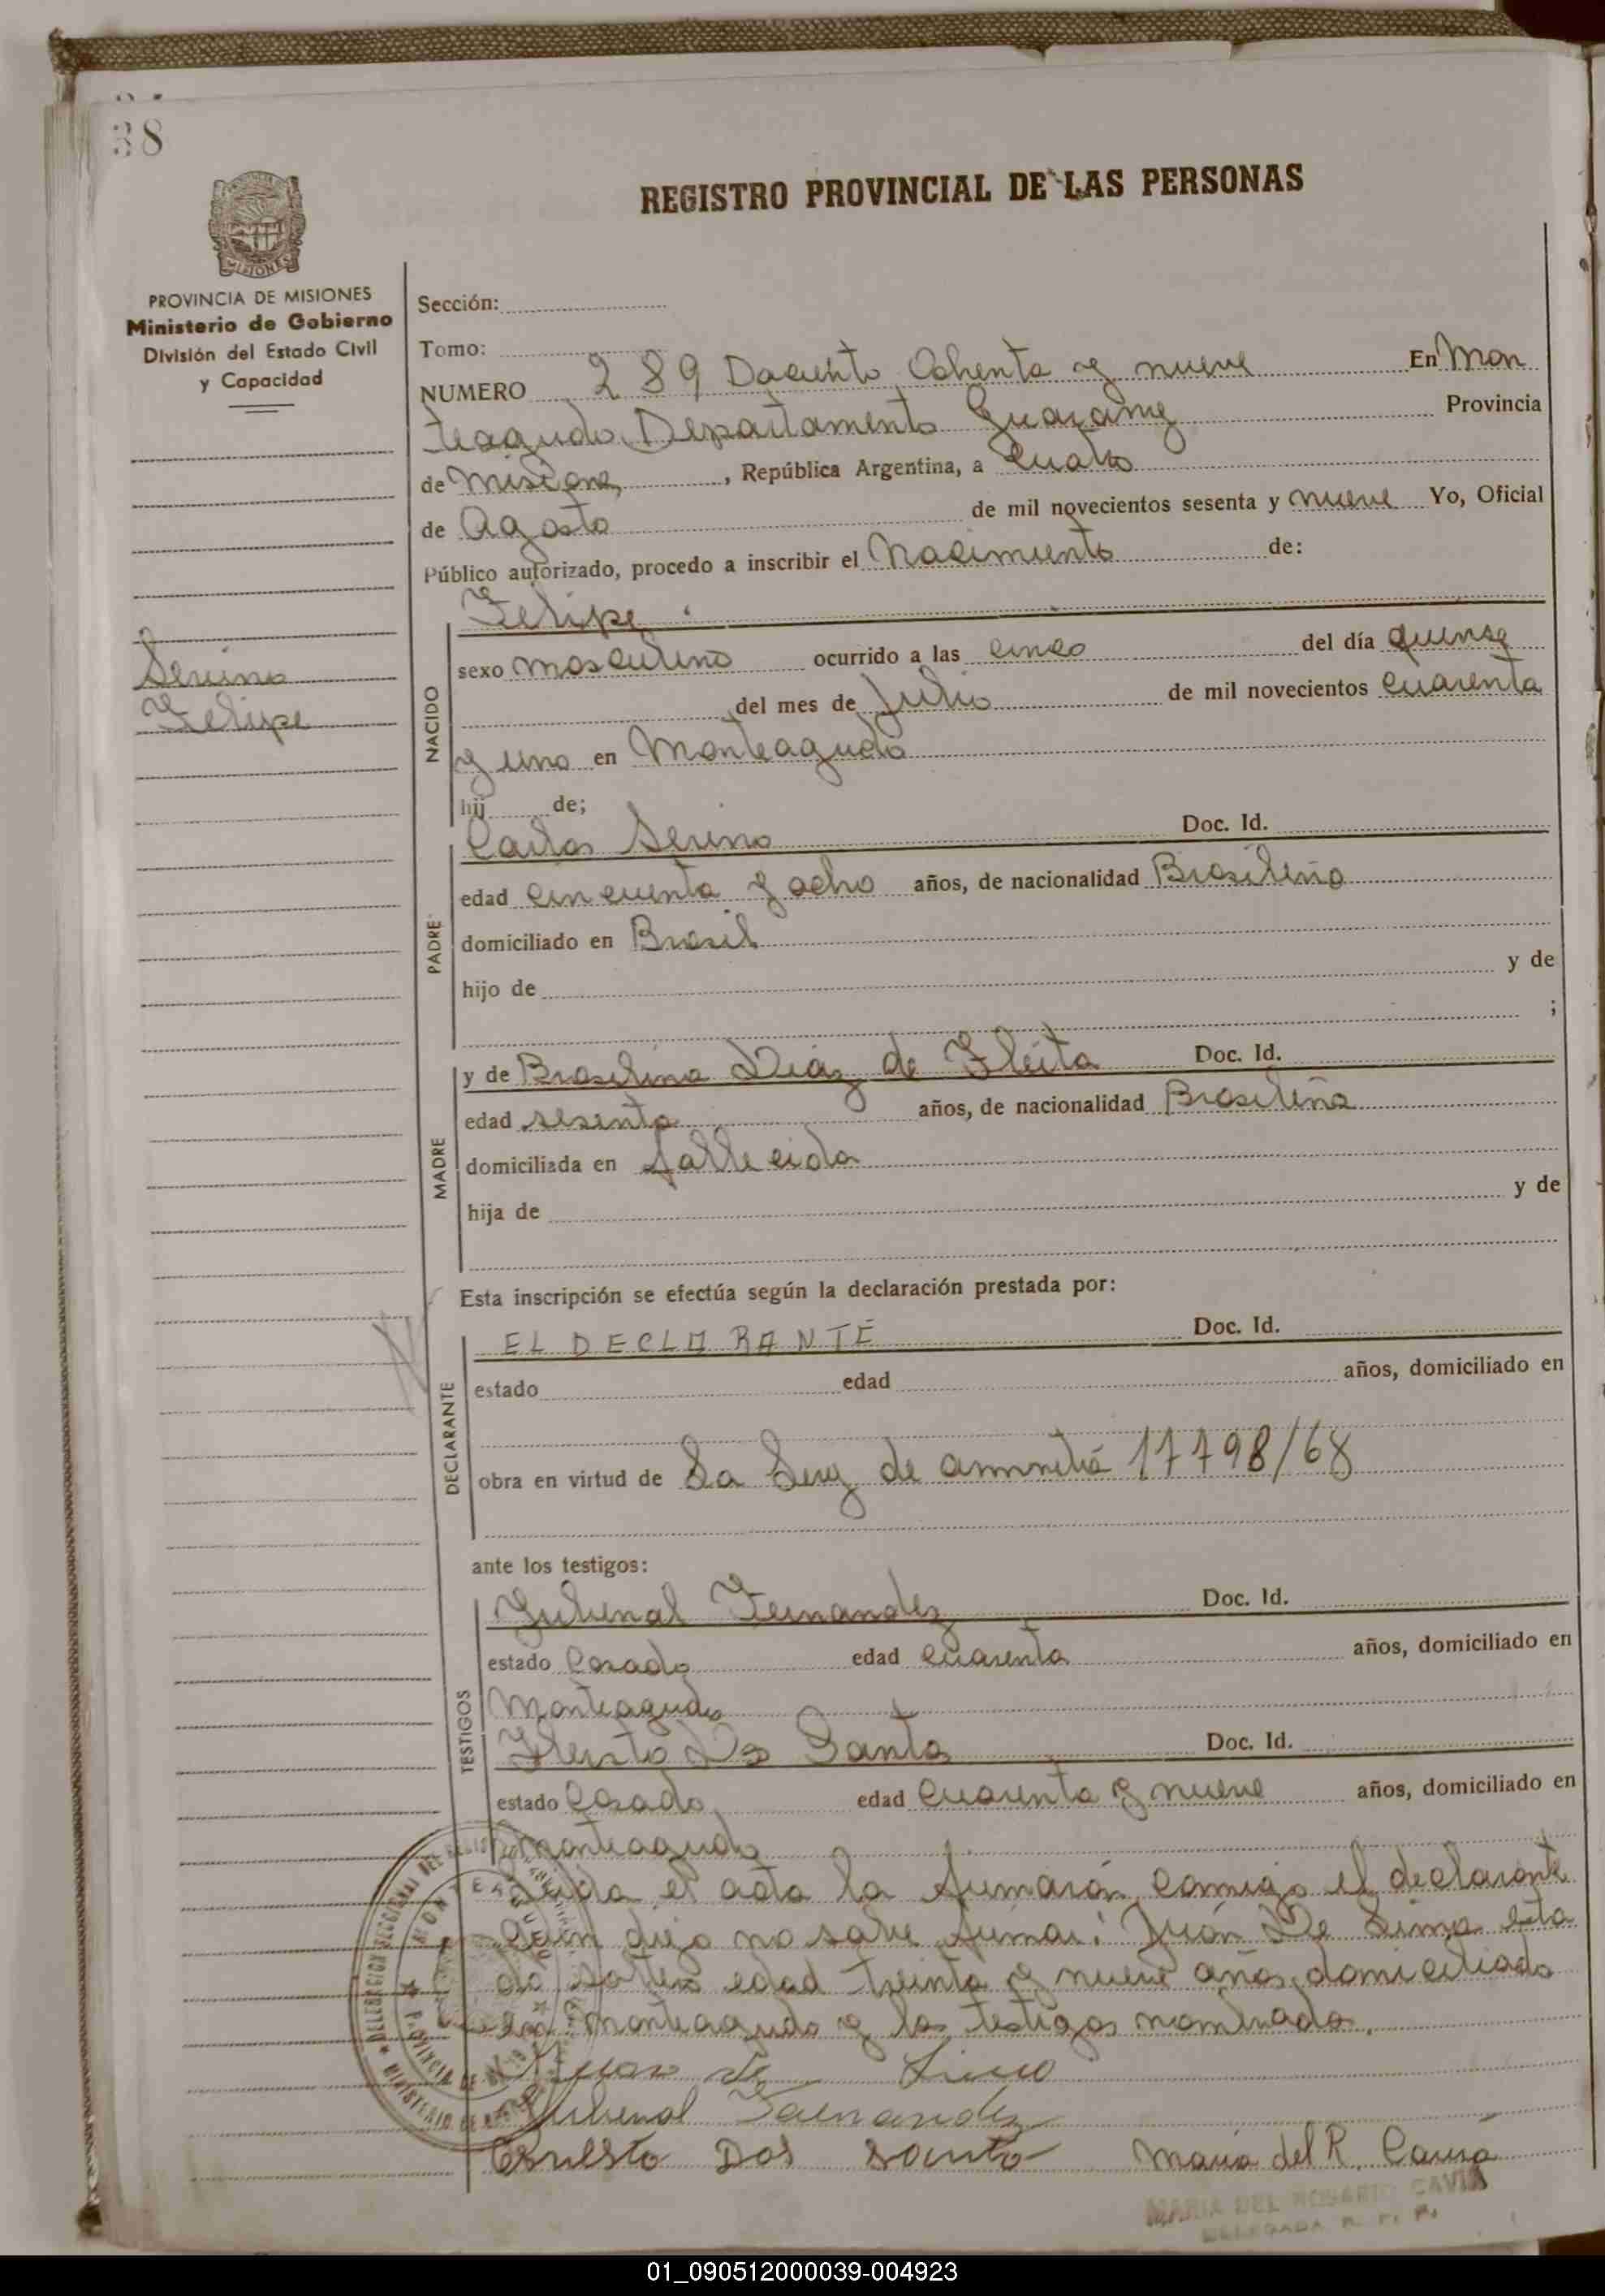 38
REGISTRO PROVINCIAL DE LAS PERSONAS
MISIONES
PROVINCIA DE MISIONES
Ministerio de Gobierno
División del Estado Civil
y Capacidad
Serino
Felipe
Sección:
Tomo:
NUMERO 289 Dociento Ochenta y nueve En Mon
teagudo Departamento Guarany Provincia
de Misiones, República Argentina, a Cuatro
de Agosto de mil novecientos sesenta y nueve Yo, Oficial
Público autorizado, procedo a inscribir el Nacimiento de:
Felipe
NACIDO
sexo masculino ocurrido a las cinco del día quinse
del mes de Julio de mil novecientos cuarenta
y uno en Monteagudo
hij de;
PADRE
Carlos Serino Doc. Id.
edad cincuenta y ocho años, de nacionalidad Brasileño
domiciliado en Brasil
hijo de y de
;
MADRE
y de Brasilina Diaz de Fleita Doc. Id.
edad sesenta años, de nacionalidad Brasileña
domiciliada en fallecida
hija de y de
Esta inscripción se efectúa según la declaración prestada por:
DECLARANTE
EL DECLARANTE Doc. Id.
estado edad años, domiciliado en
obra en virtud de La Ley de 17798/68
ante los testigos:
TESTIGOS
Juvenal Fernandez Doc. Id.
estado Casado edad cuarenta años, domiciliado en
Monteagudo
Do Santo Doc. Id.
estado Casado edad cuarenta y nueve años, domiciliado en
Monteagudo
Leida el acta la firmarón comigo el declarante
dijo no save firmar: Juán De Lima esta
do edad treinta y nueve años domiciliado
en Monteagudo y los testigos nombrado.
Juan de Lima
Juvenal Fernandez
Ernesto Dos Santo Maria del R. Cavia
MARIA DEL ROSARIO CAVIA
DELEGADA R. P. P.
01_090512000039-004923